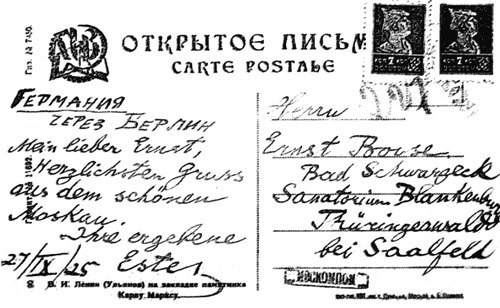 ОТКРЫТОЕ ПИСЬМО
CARTE POSTALE
7
7
ГЕРМАНИЯ
ЧЕРЕЗ БЕРЛИН
Mein lieber Ernst,
Herzlichsten Gruss
aus dem schönen
Moskau.
Ihre ergebene
Ester
27/IX/25
Herrn
Ernst Bouse
Bad Schwarzeck
Sanatorium Blankenburg
Thüringerwald
bei Saalfeld
В. И. Ленин (Ульянов) на закладке памятника
Карлу Марксу.